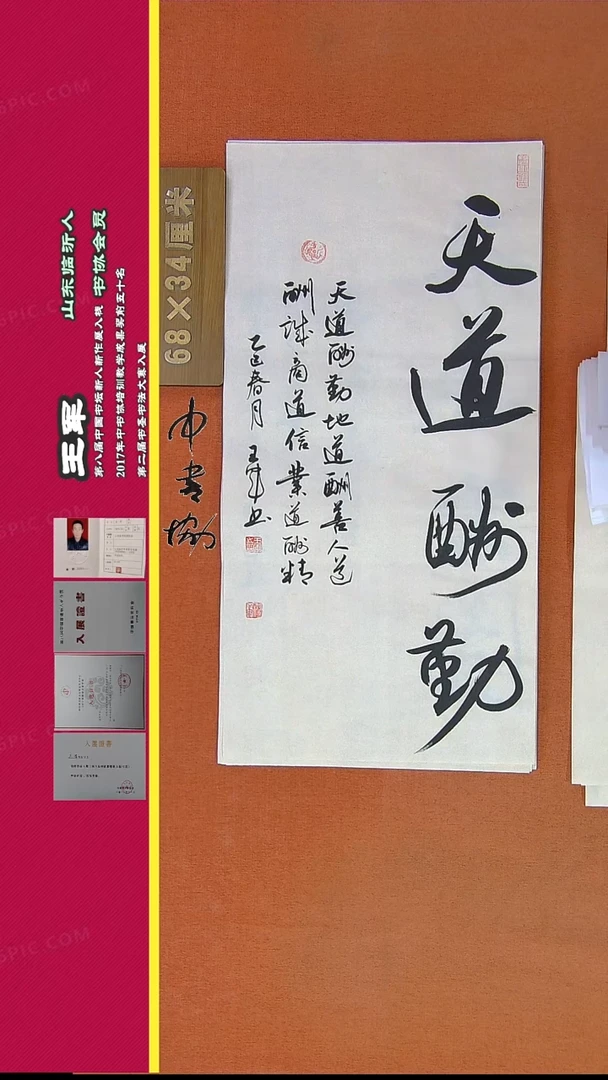 天道酬勤
天道酬勤地道酬善人道
酬诚商道信业道酬精
乙巳春月 王军书
68×34厘米
中书协
王军
山东临沂人
书协会员
第八届中国书坛新人新作展入展
2017年中书协培训教学成果奖前五十名
第二届书圣书法大赛入展
入展證書